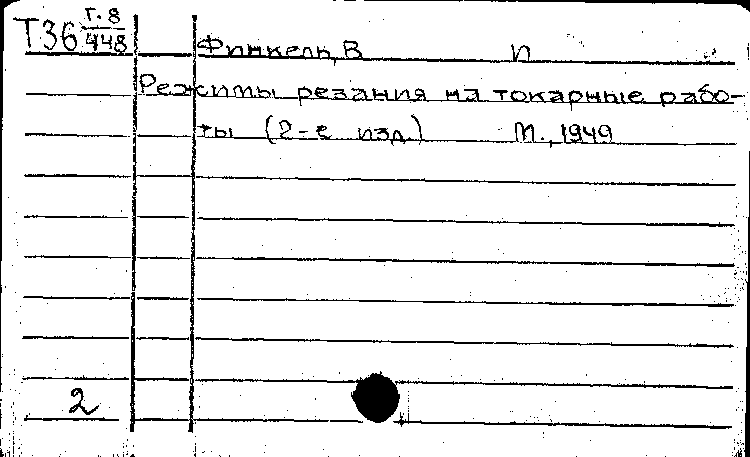 Т36 Г.8/448
Финкель, В И
Режимы резания на токарные рабо-
ты (2-е изд.) М., 1949
2